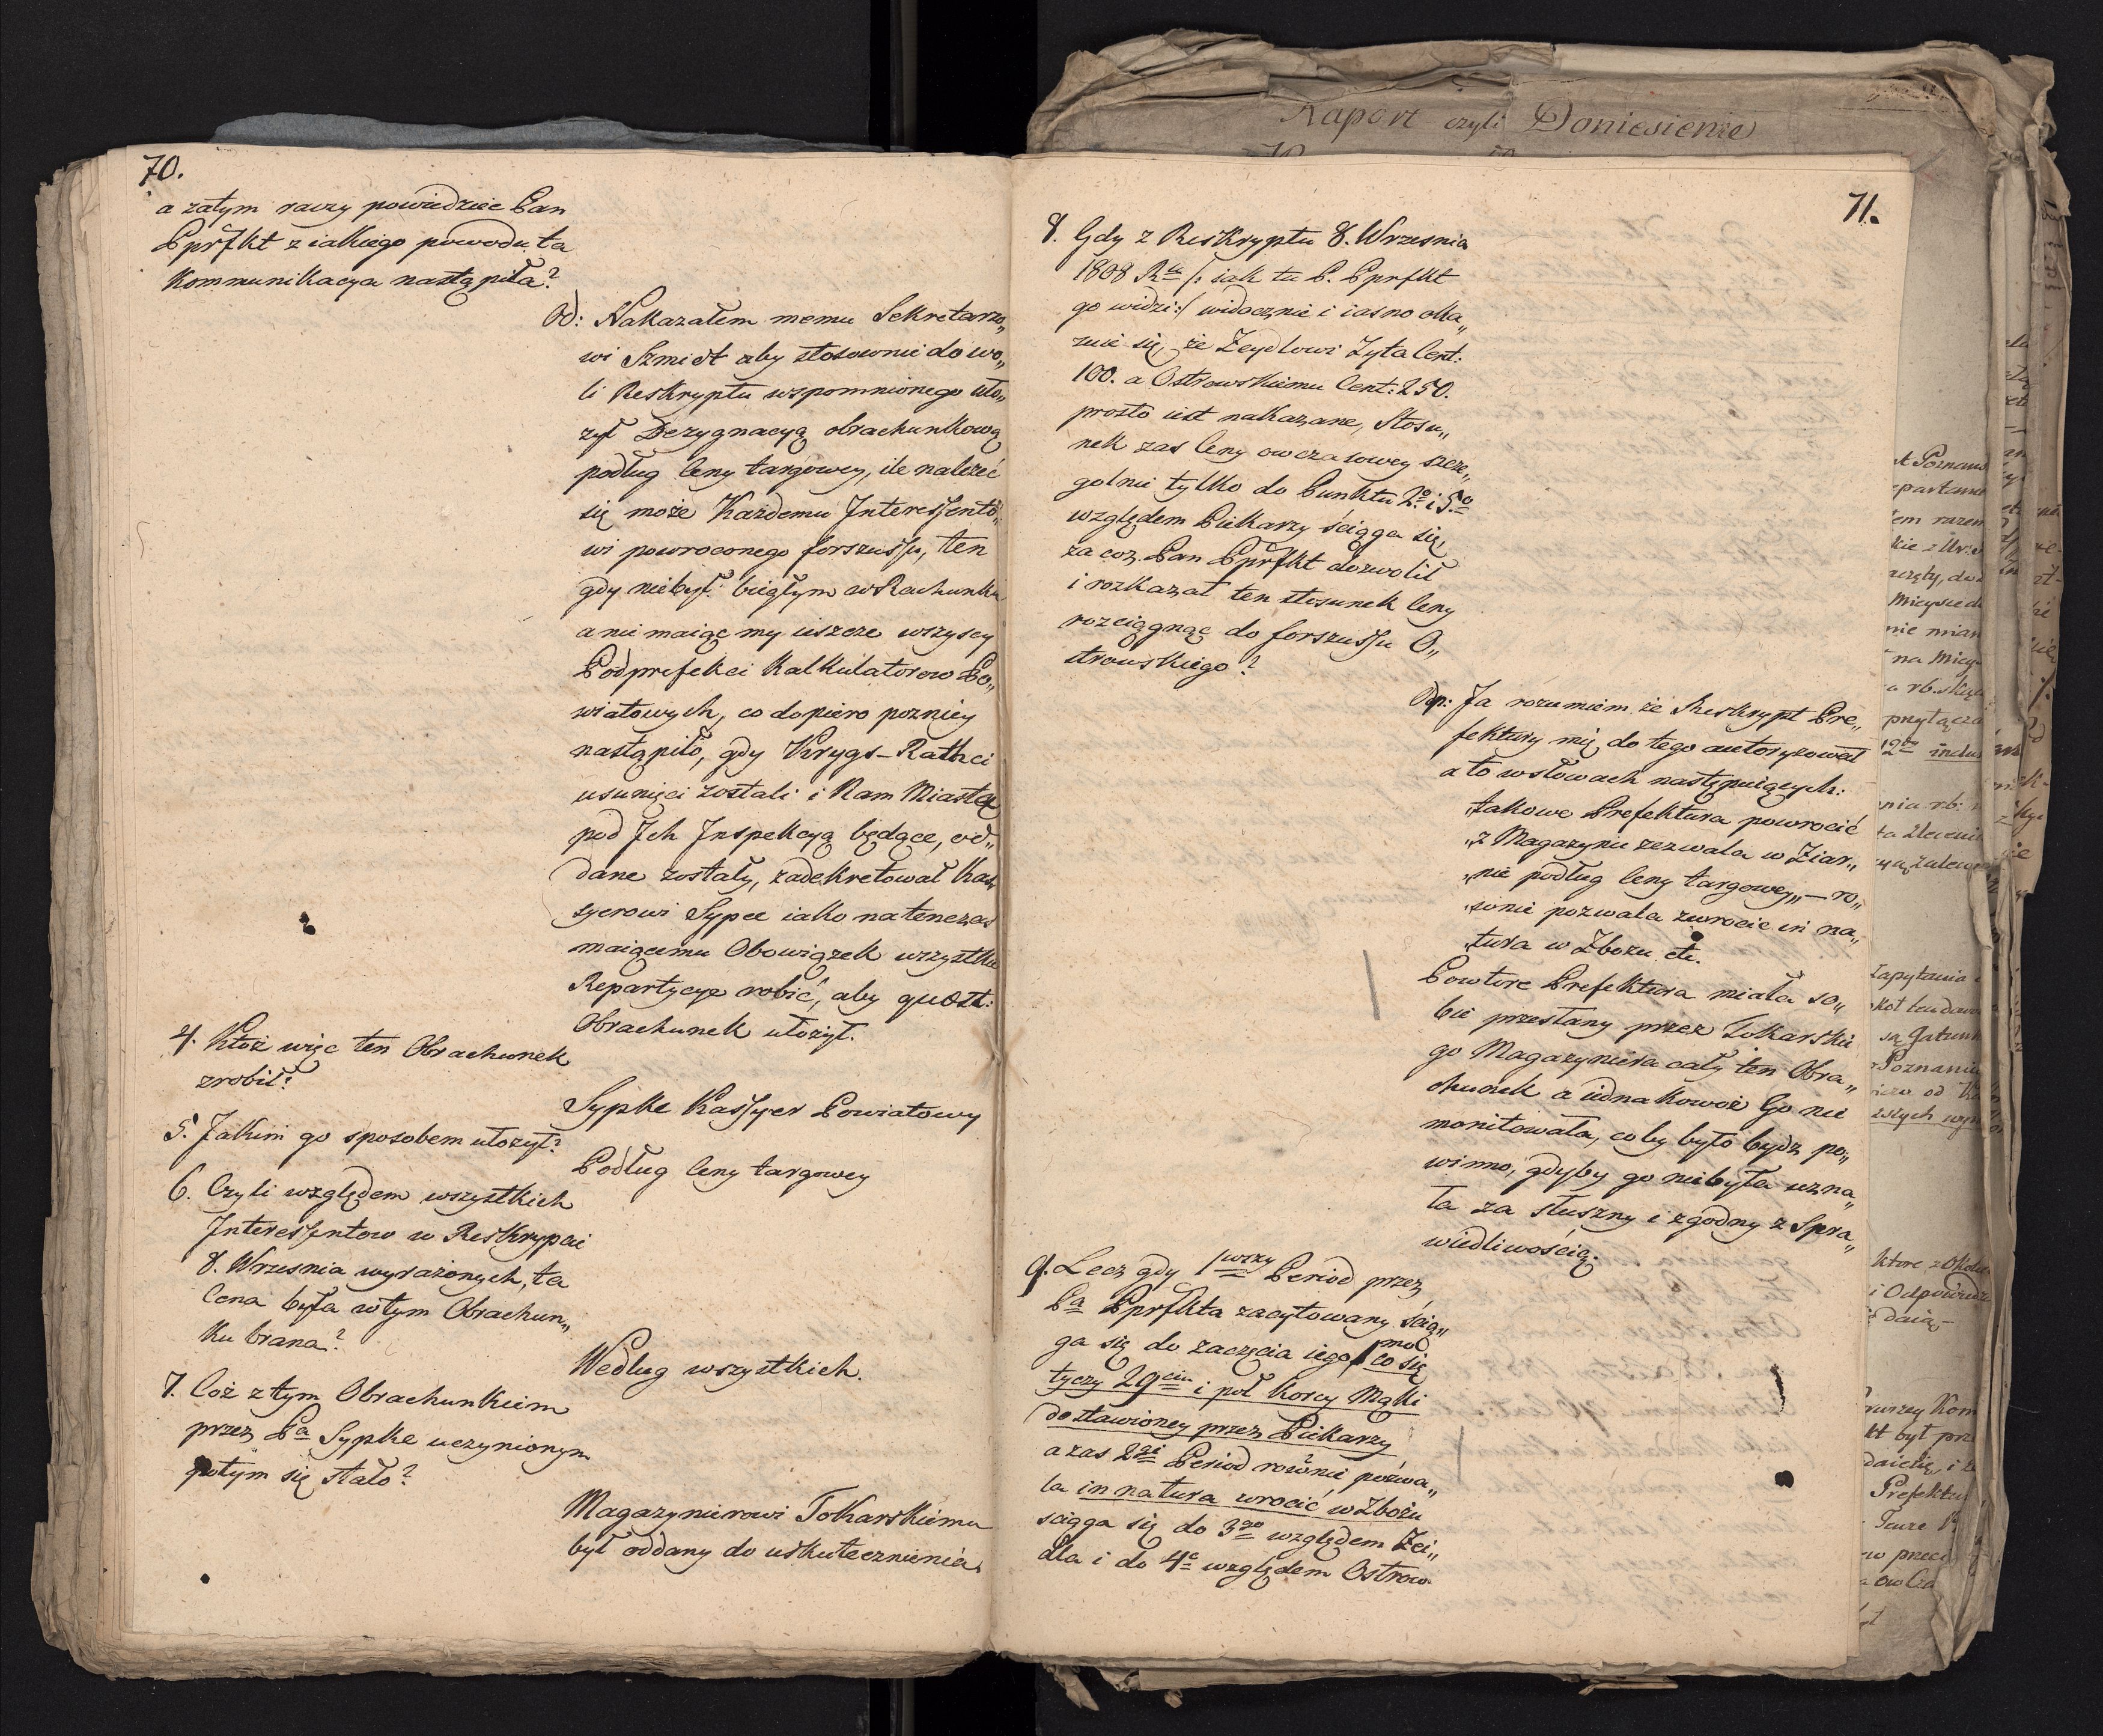 70.
a zatym raczy powiedzieć Pan
Pprfkt z iakiego powodu ta
Kommunikacya nastąpiła?
Od: Nakazałem memu Sekretarzo„
wi Szmidt aby stosownie do wo„
li Reskryptu wspomnionego uło„
żył Dezygnacyą obrachunkową
podług Ceny targowey, ile należeć
się może Każdemu Interessento„
wi powroconego forszussu, ten
gdy niebył biegłym w Rachunku
a nie maiąc my ieszcze wszyscy
Podprefekci Kalkulatorow Po„
wiatowych, co dopiero pozniey
nastąpiło, gdy Krygs-Rathci
usunięci zostali i Nam Miasta
pod Ich Inspekcyą będące, od„
dane zostały, zadekretował Kas„
syerowi Sypce iako natenczas
maiącemu Obowiązek wszystkie
Repartycye robić, aby quost:
Obrachunek ułożył.
4. Ktoż więc ten Obrachunek
zrobił?
Sypke Kassyer Powiatowy
5. Jakim go sposobem ułożył?
Podług Ceny targowey
6. Czyli względem wszystkich
Interessentow w Reskrypcie
8. Wrzesnia wyrażonych, ta
Cena była w tym Obrachun„
ku brana?
Według wszystkich.
7. Coż z tym Obrachunkiem
przez Pa Sypke uczynionym
potym się stało?
Magazynierowi Tokarskiemu
był oddany do uskutecznienia.
71.
8. Gdy z Reskryptu 8. Wrzesnia
1808 Rku /: iak tu P. Pprfkt
go widzi:/ widocznie i iasno oka„
zuie się, że Zeydlowi Żyta Cent:
100. a Ostrowskiemu Cent: 250.
prosto iest nakazane, Stosu„
nek zas Ceny owczasowey szcze„
golnie tylko do Punktu 2o i 5o
względem Piekarzy ściąga się,
za coż Pan Pprfkt dozwolił
i rozkazał ten stosunek Ceny
rozciągnąc do forszussu O„
strowskiego?
Odp: Ja rozumiem że Reskrypt Pre„
fektury mię do tego autoryzował
a to w słowach następuiących:
„takowe Prefektura powrocić
„z Magazynu zezwala w Ziar„
„nie podług Ceny targowey„ — ro„
„wnie pozwala zwrocic in na„
„tura w Zbożu etc.
Powtore Prefektura miała so„
bie przesłany przez Tokarskie
go Magazyniera cały ten Obra„
chunek a iednakowoż Go nie
monitowała, coby było bydz po„
winno, gdyby go niebyła uzna„
ła za słuszny i zgodny z Spra„
wiedliwością.
9. Lecz gdy 1wszy Period przez
Pa Pprfkta zacytowany ścią„
ga się do zaczęcia iego 1mo co się
tyczy 29ciu i poł korcy Mąki
dostawioney przez Piekarzy
a zas 2gi Period rownie pozwa„
la in natura wrocić w Zbożu
sciąga się do 3go względem Zei„
dla i do 4o względem Ostrow
Raport czyli Doniesienie